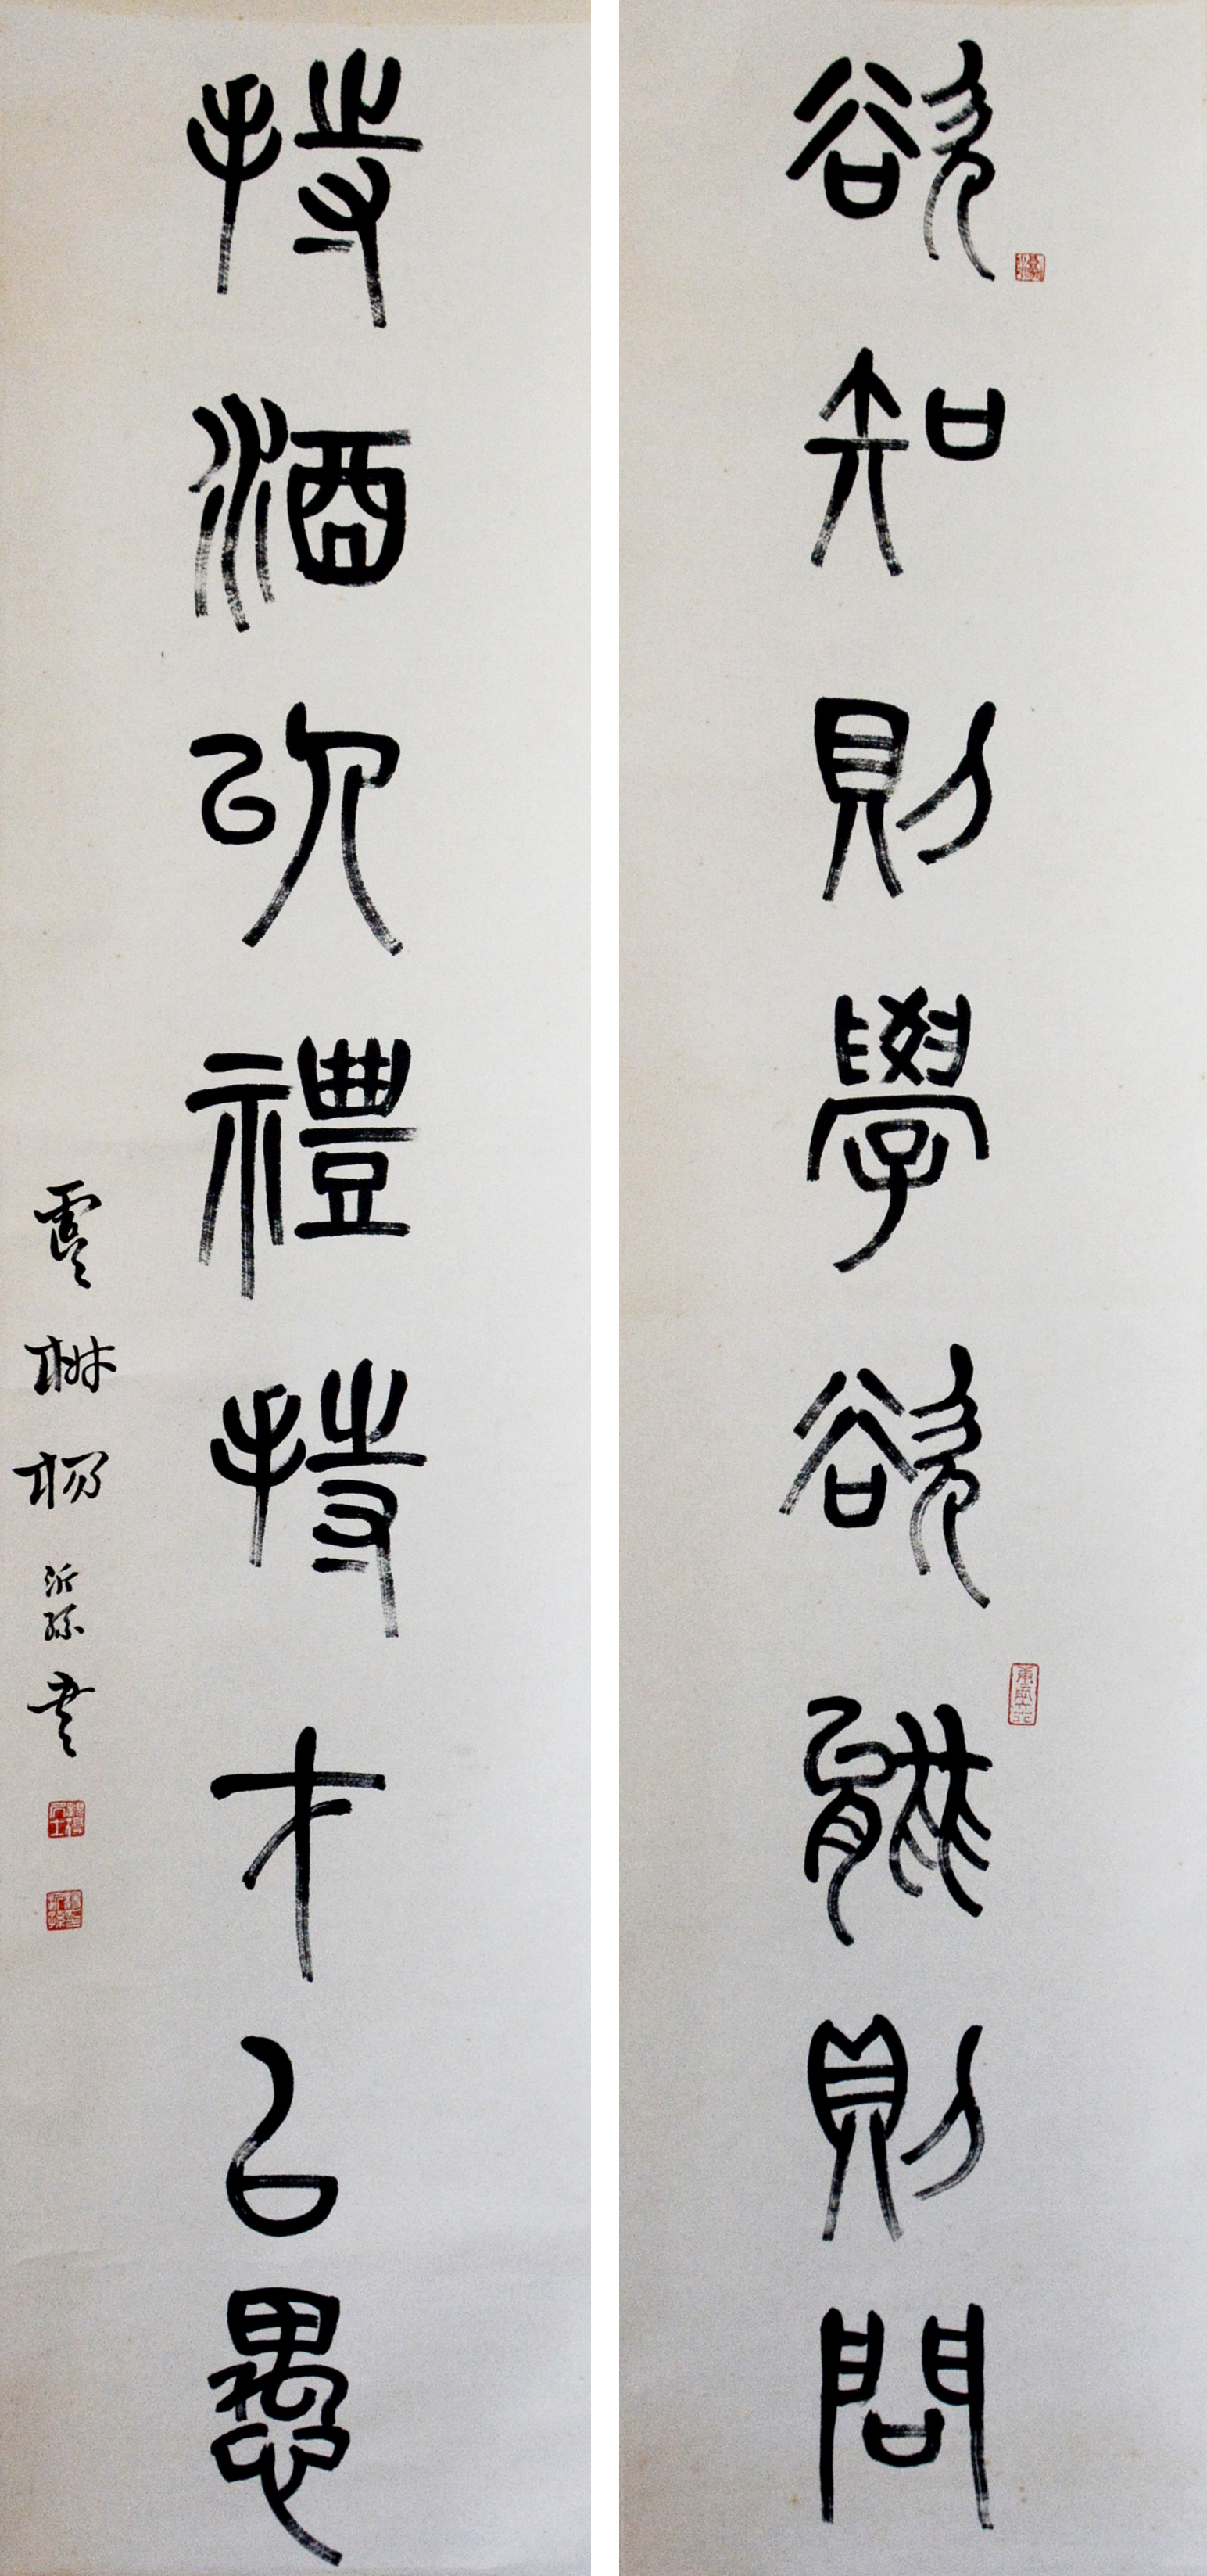 欲知則學欲能則問
持酒以禮持才以愚
虞琳楊沂孫書